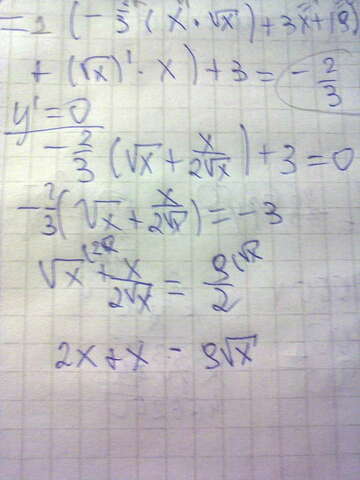 (-2/3 (x · √x) + 3x + 19)
+ (√x)' · x) + 3 = -2/3
y' = 0
-2/3 (√x + x/2√x) + 3 = 0
-2/3 (√x + x/2√x) = -3
√x + x/2√x = 9/2
2x + x = 9√x